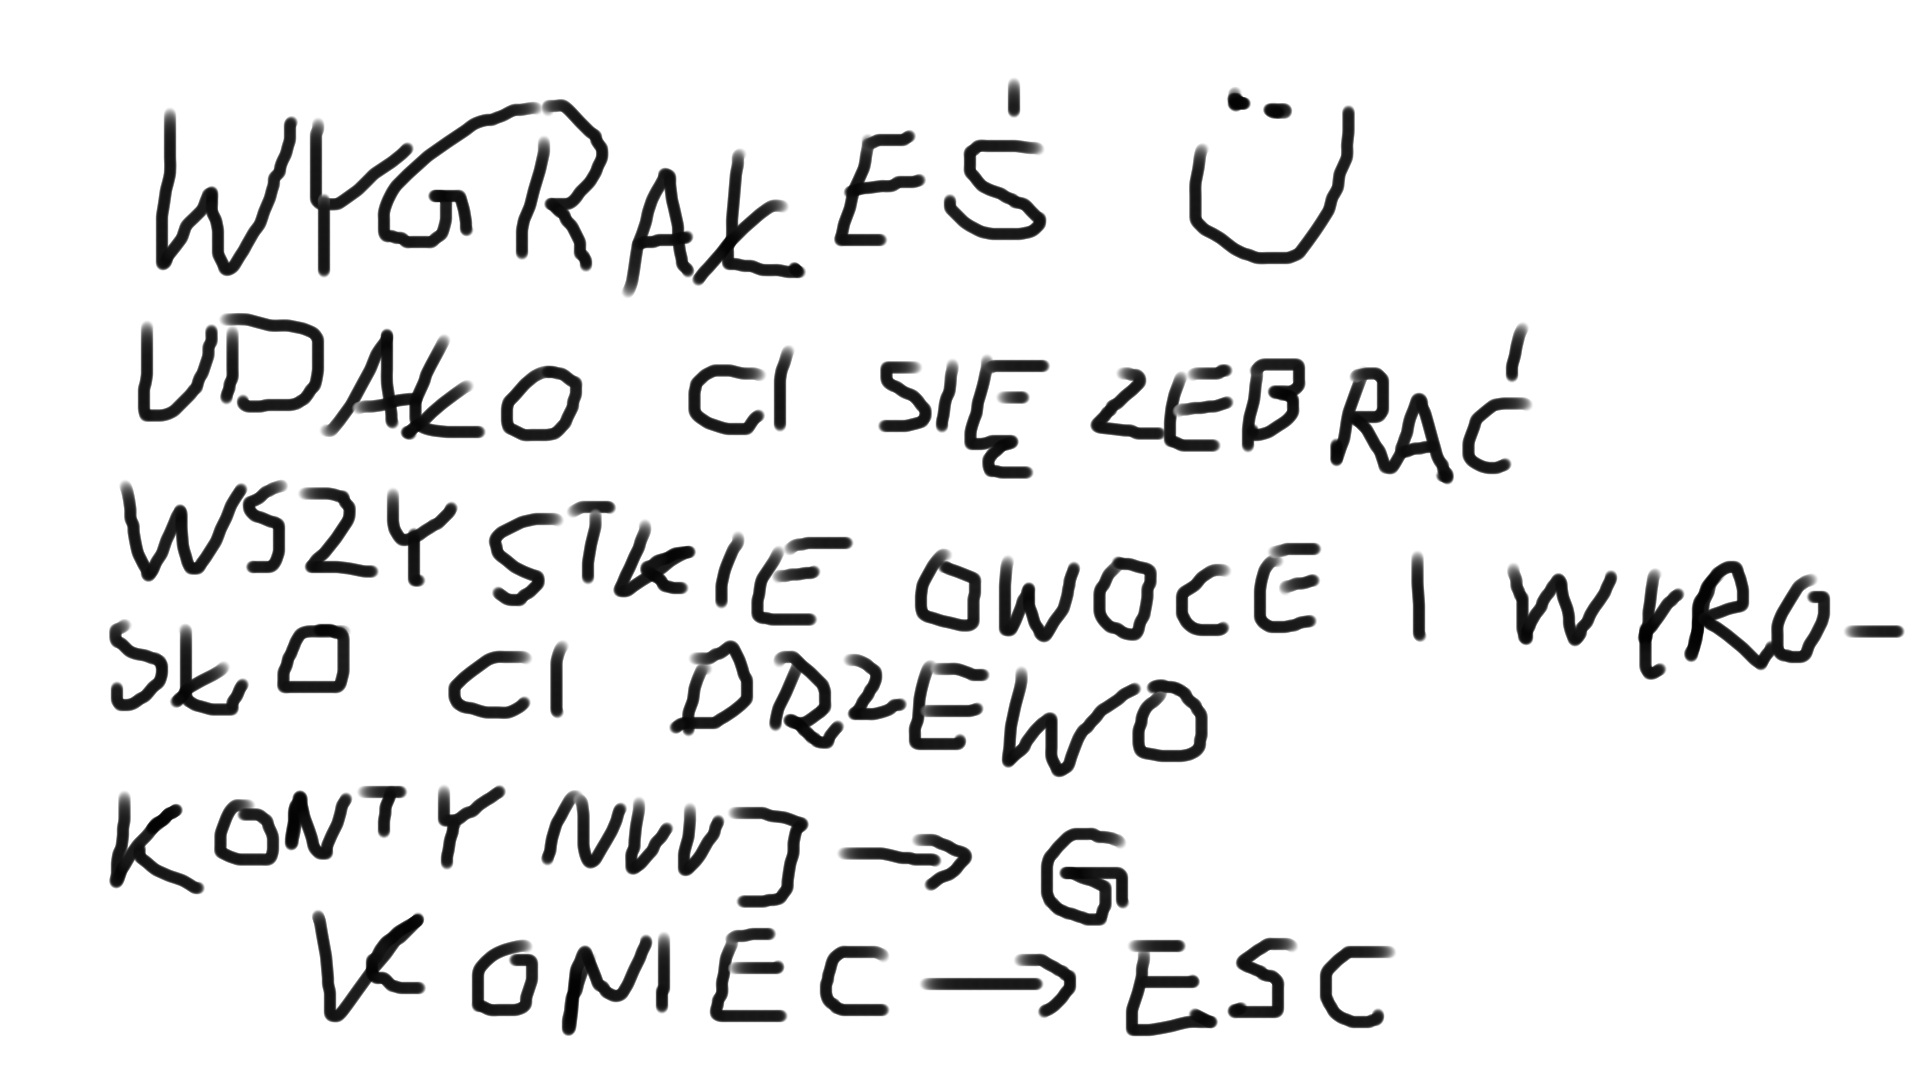 WYGRAŁEŚ Ü
UDAŁO CI SIĘ ZEBRAĆ
WSZYSTKIE OWOCE I WYRO-
SŁO CI DRZEWO
KONTYNUUJ → G
KONIEC → ESC